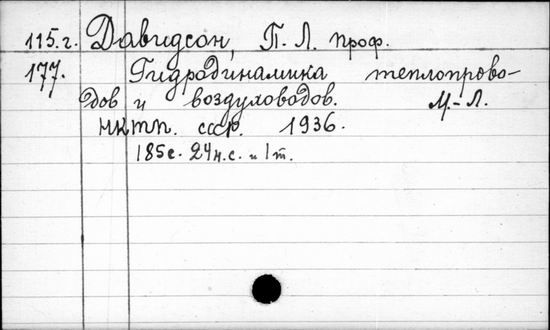 115.г. Давидсон, П. Л. проф.
177. Гидродинамика теплопрово-
дов и воздуховодов. М.-Л.
НКТП. СССР. 1936.
185с. 24н.с. и 1т.